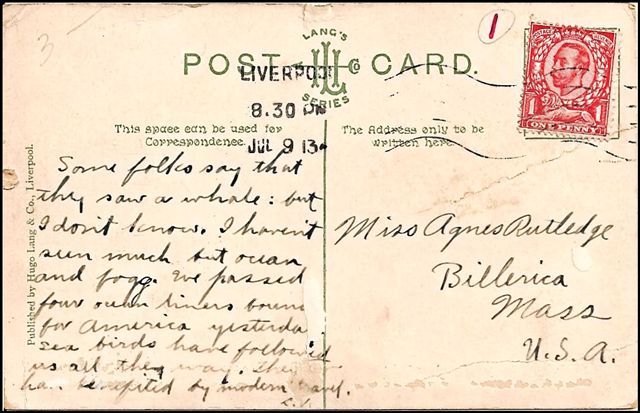 3
1
LANG'S
POST CARD.
H L Co
SERIES
POSTAGE REVENUE
1 1
ONE PENNY
LIVERPOOL
8.30 PM
JUL 9 13
This space can be used for
Correspondence.
The Address only to be
written here.
Published by Hugo Lang & Co., Liverpool.
Some folks say that
they saw a whale: but
I don't know. I haven't
seen much but ocean
and fogg. Eve passed
four ocean liners boun
for America yesterda
sea birds have followed
us all they way. They
han benefited by modern travel.
Miss Agnes Rutledge
Billerica
Mass
U.S.A.